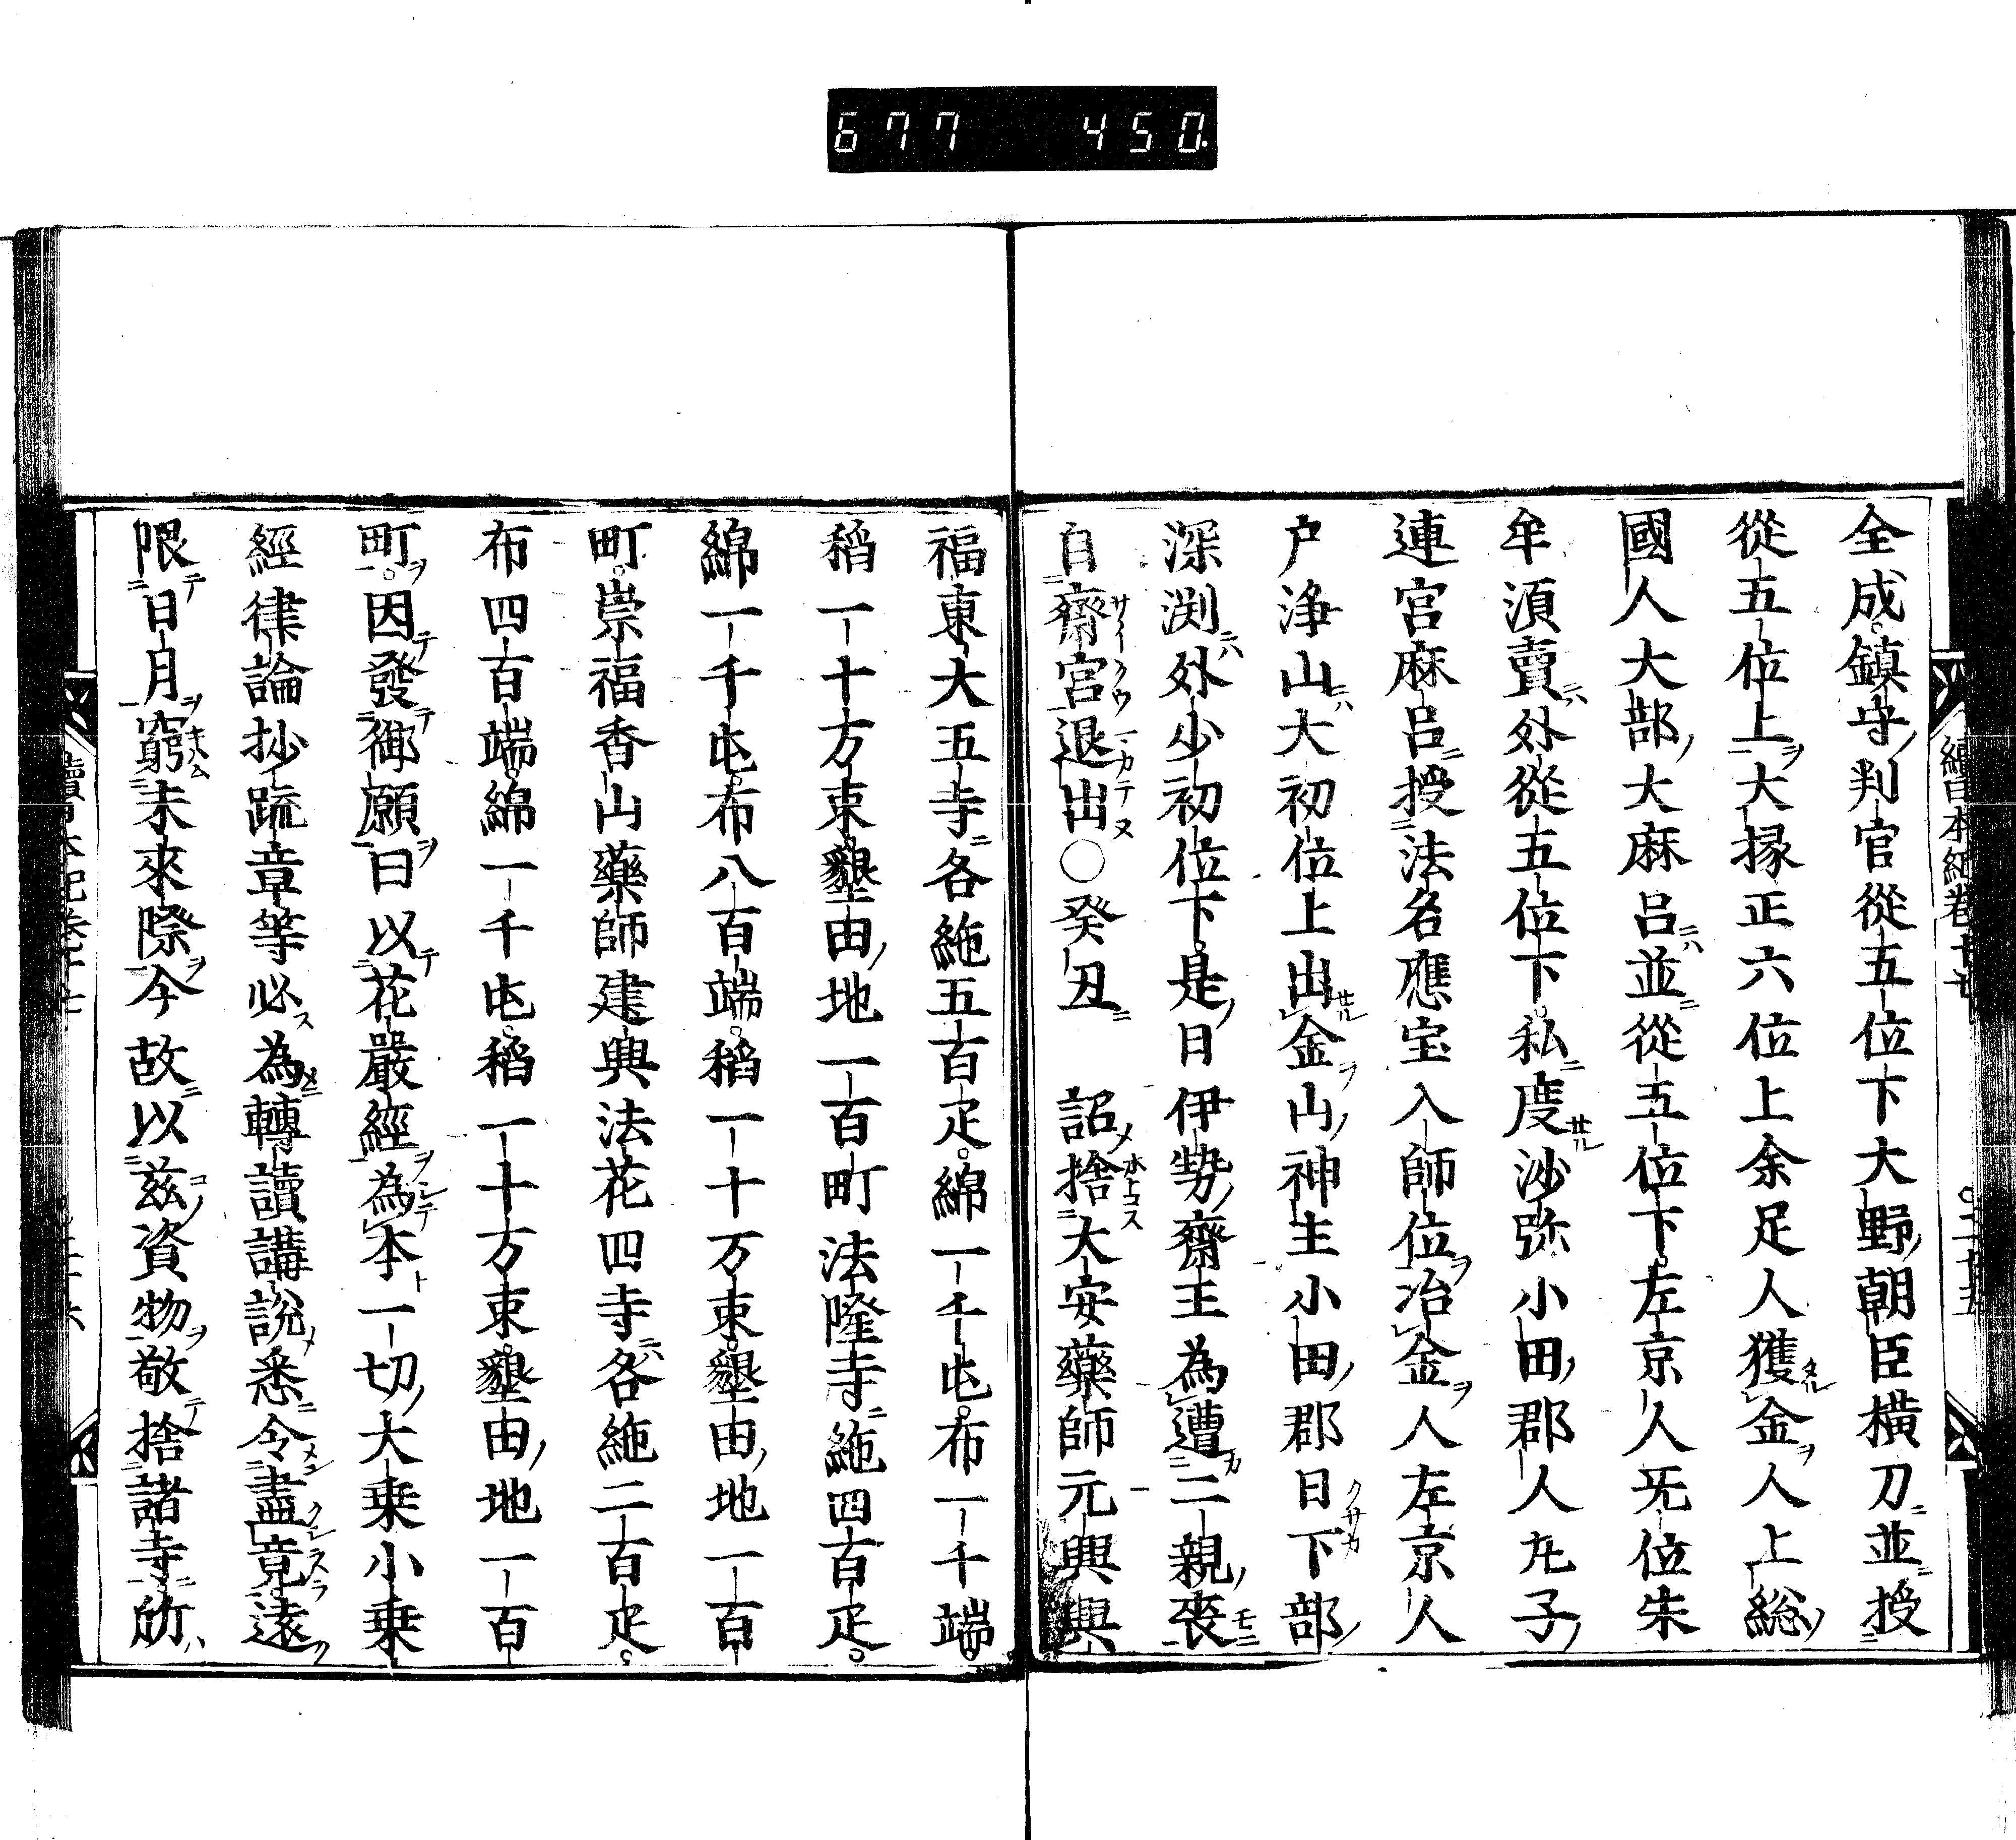 677 450
續日本紀卷十七
全成鎮守判官從五位下大野朝臣横刀並授
從五位上大掾正六位上余足人獲金人上総
國人大部大麻呂並從五位下左京人旡位朱
牟湏賣外從五位下私度沙弥小田郡人丸子
連宮麻呂授法名應宝入師位冶金人左京人
戸浄山大初位上出金山神主小田郡日下部
深渕外少初位下是日伊勢齋王為遭二親喪
自齋宮退出○癸丑 詔捨大安藥師元興興
福東大五寺各絁五百疋綿一千屯布一千端
稻一十万束墾由地一百町法隆寺絁四百疋
綿一千屯布八百端稻一十万束墾由地一百
町崇福香山藥師建興法花四寺各絁二百疋
布四百端綿一千屯稻一十万束墾由地一百
町因發御願曰以花嚴經為本一切大乗小乗
經律論抄䟽章等必為轉讀講說悉令盡竟遠
限日月窮未來際今故以兹資物敬捨諸寺所